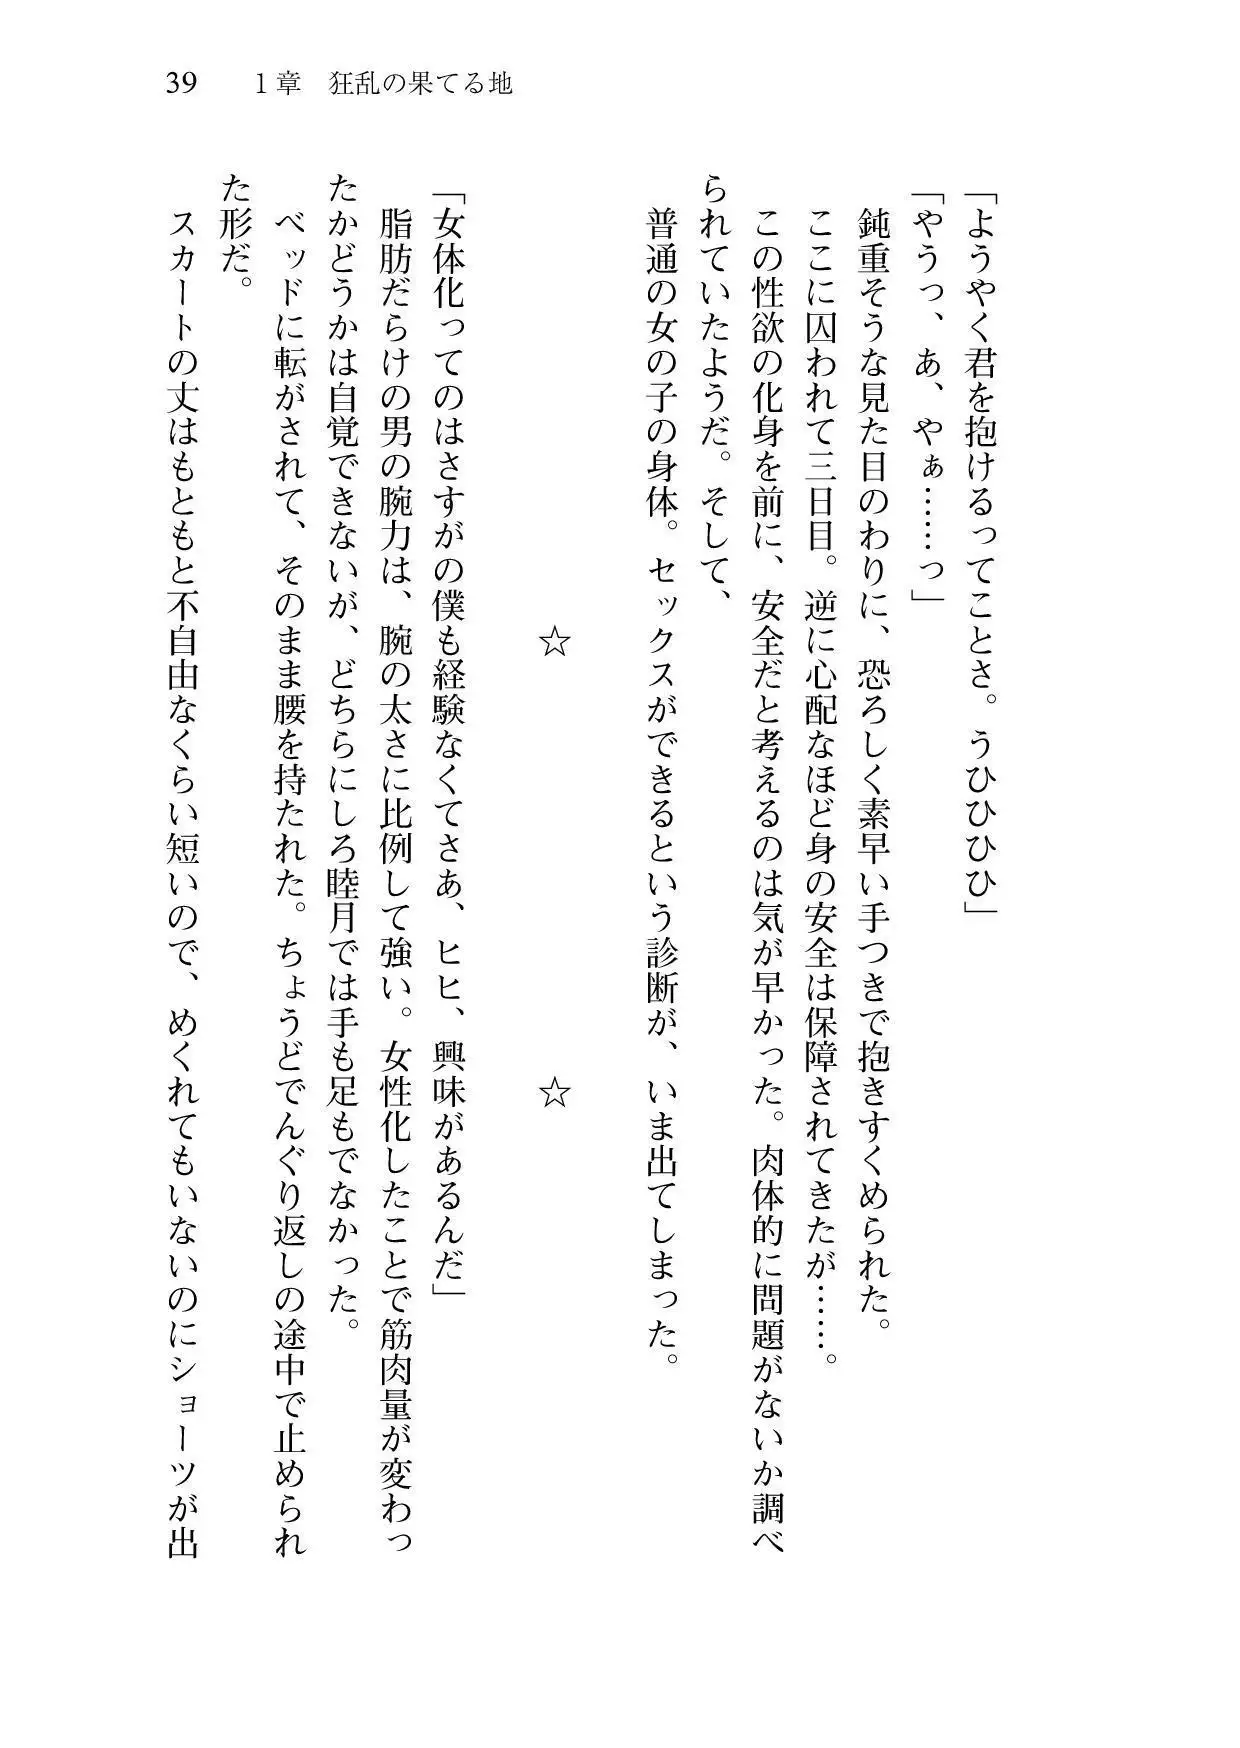 39 1章 狂乱の果てる地
「ようやく君を抱けるってことさ。うひひひひ」
「やうっ、あ、やぁ……っ」
鈍重そうな見た目のわりに、恐ろしく素早い手つきで抱きすくめられた。
ここに囚われて三日目。逆に心配なほど身の安全は保障されてきたが……。
この性欲の化身を前に、安全だと考えるのは気が早かった。肉体的に問題がないか調べ
られていたようだ。そして、
普通の女の子の身体。セックスができるという診断が、いま出てしまった。
☆ ☆
「女体化ってのはさすがの僕も経験なくてさあ、ヒヒ、興味があるんだ」
脂肪だらけの男の腕力は、腕の太さに比例して強い。女性化したことで筋肉量が変わっ
たかどうかは自覚できないが、どちらにしろ睦月では手も足もでなかった。
ベッドに転がされて、そのまま腰を持たれた。ちょうどでんぐり返しの途中で止められ
た形だ。
スカートの丈はもともと不自由なくらい短いので、めくれてもいないのにショーツが出